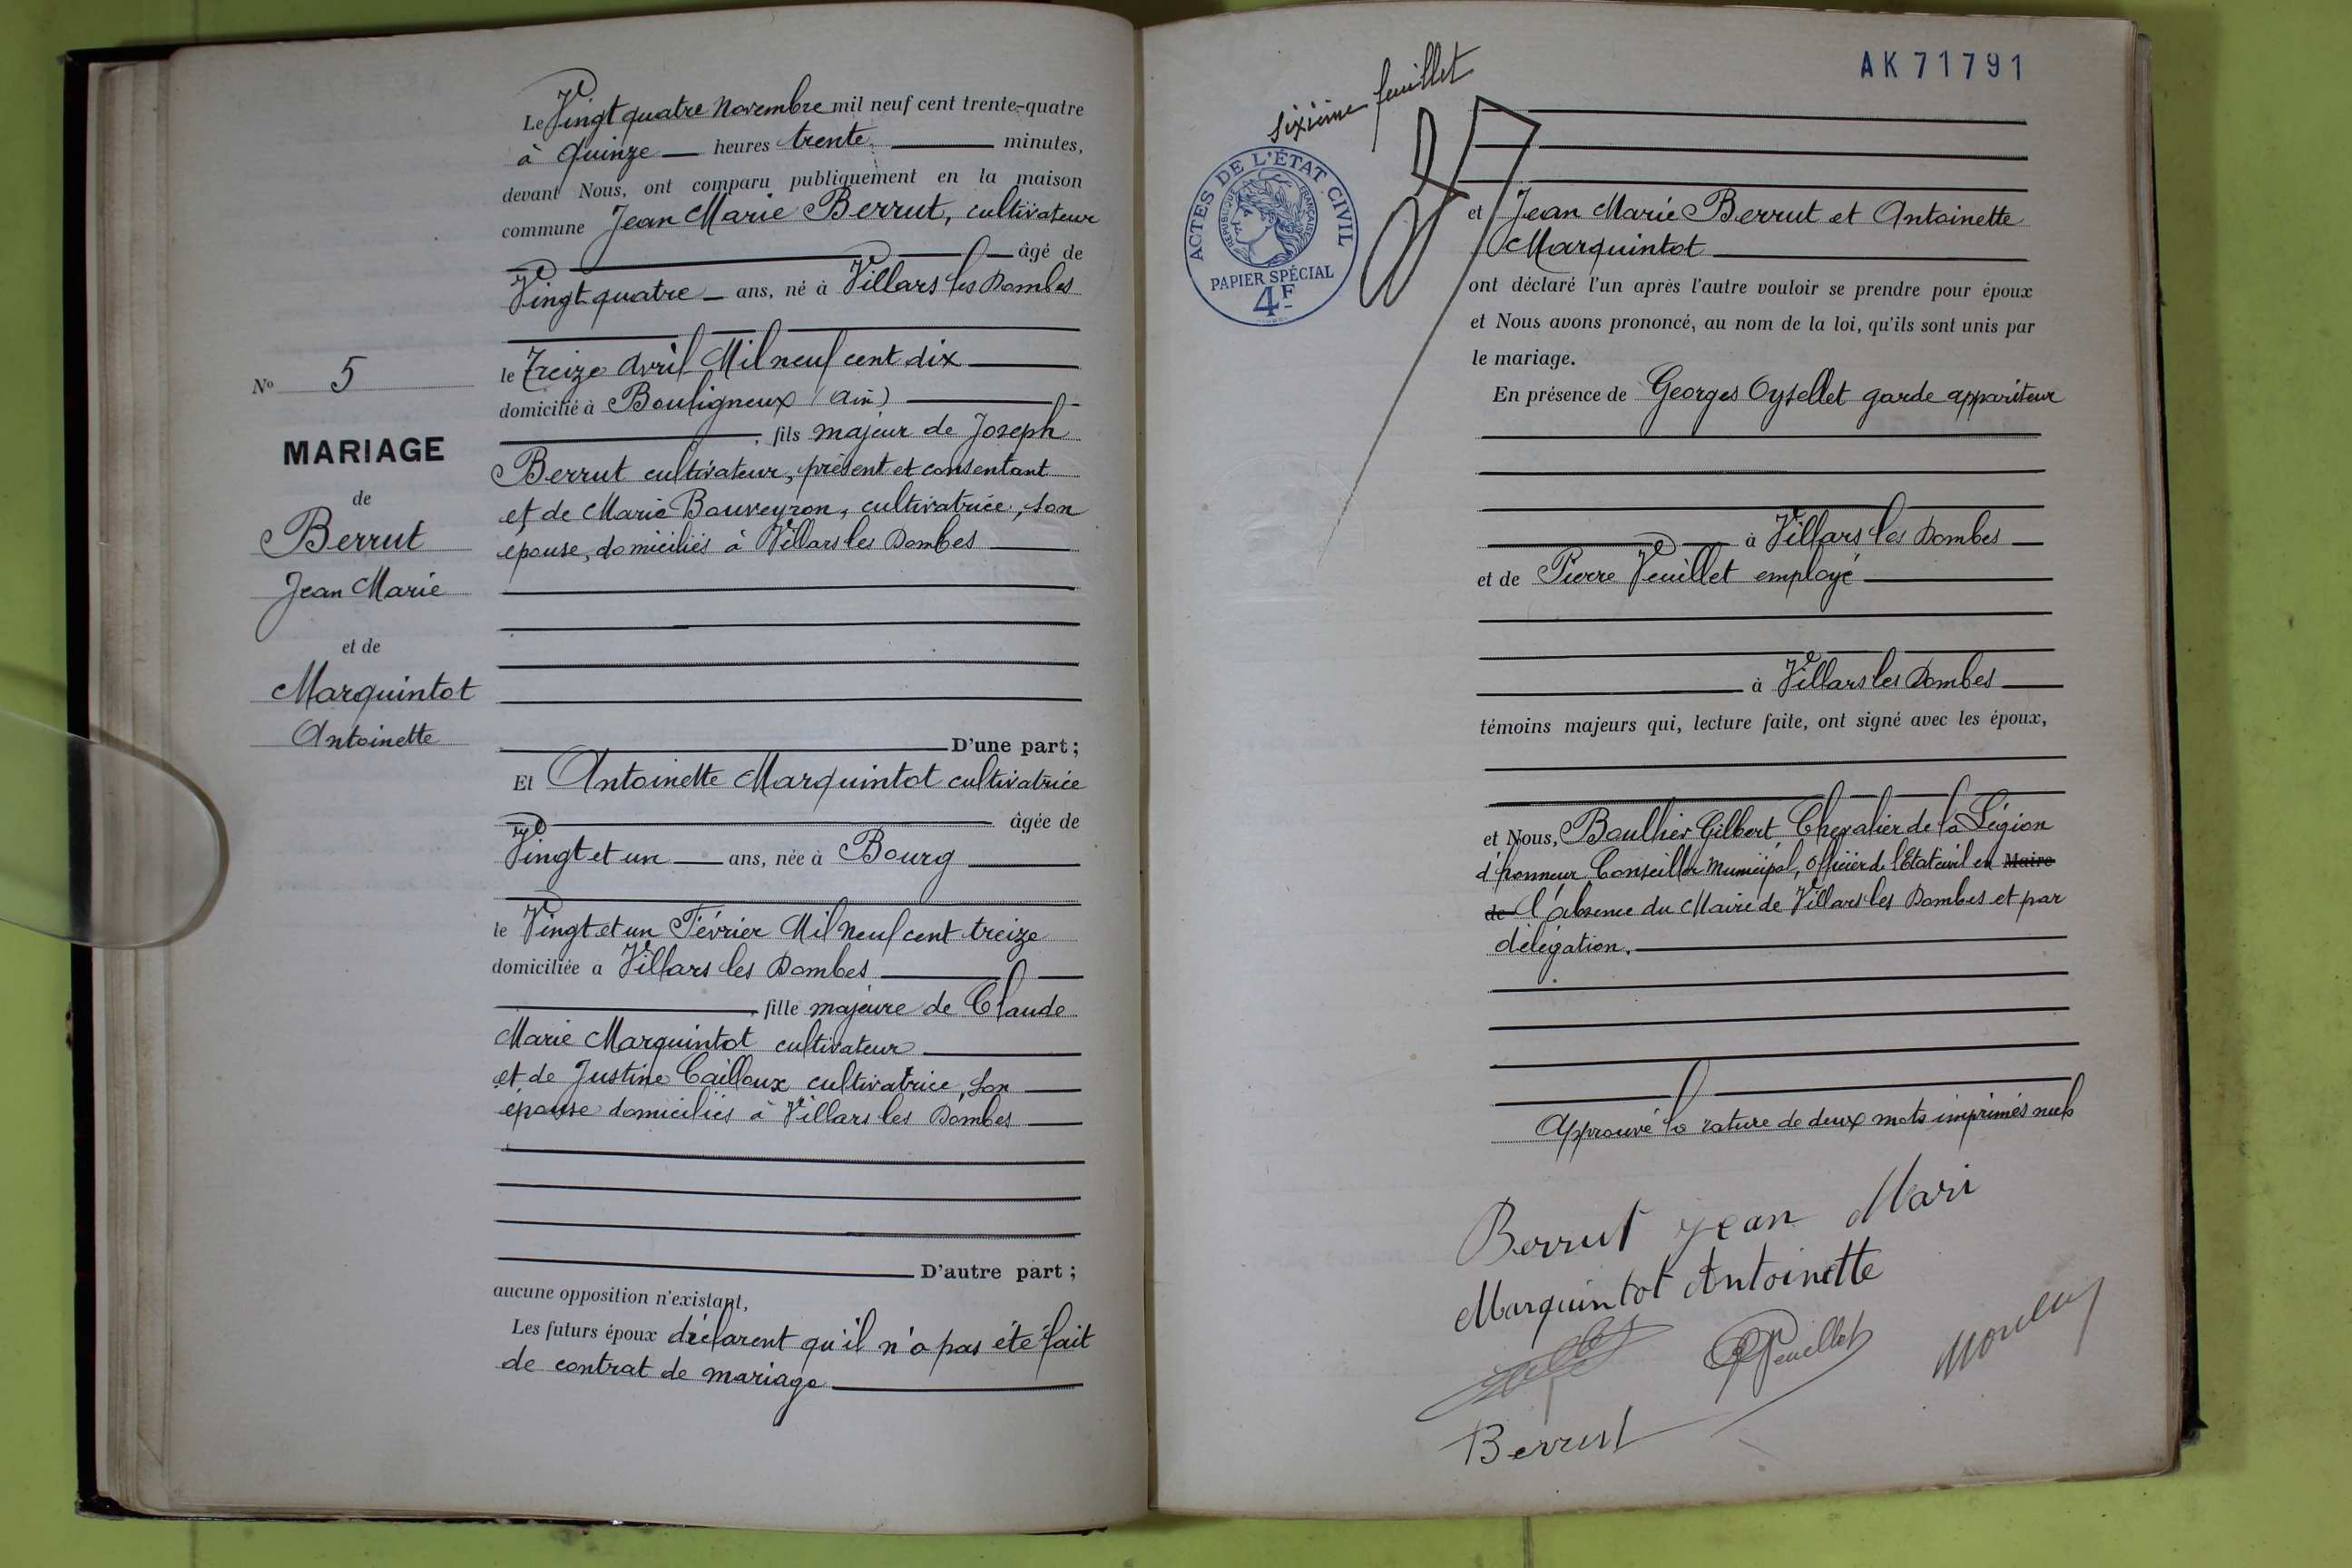 Le Vingt quatre Novembre mil neuf cent trente-quatre
à Quinze heures trente minutes,
devant Nous, ont comparu publiquement en la maison
commune Jean Marie Berrut, cultivateur
âgé de
Vingt quatre ans, né à Villars les Dombes
le Treize Avril Mil neuf cent dix
domicilié à Bouligneux (Ain)
, fils majeur de Joseph
Berrut cultivateur, présent et consentant
et de Marie Bouveyron, cultivatrice, son
épouse, domiciliés à Villars les Dombes
No 5
MARIAGE
de
Berrut
Jean Marie
et de
Marquintot
Antoinette
D'une part;
Et Antoinette Marquintot cultivatrice
âgée de
Vingt et un ans, née à Bourg
le Vingt et un Février Mil neuf cent treize
domiciliée a Villars les Dombes
, fille majeure de Claude
Marie Marquintot cultivateur
et de Justine Cailloux cultivatrice, son
épouse domiciliés à Villars les Dombes
D'autre part;
aucune opposition n'existant,
Les futurs époux déclarent qu'il n'a pas été fait
de contrat de mariage
AK71791
sixième feuillet
ACTES DE L'ÉTAT CIVIL
RÉPUBLIQUE FRANÇAISE
PAPIER SPÉCIAL
4F
et Jean Marie Berrut et Antoinette
Marquintot
ont déclaré l'un après l'autre vouloir se prendre pour époux
et Nous avons prononcé, au nom de la loi, qu'ils sont unis par
le mariage.
En présence de Georges Oysellet garde appariteur
à Villars les Dombes
et de Pierre Veuillet employé
à Villars les Dombes
témoins majeurs qui, lecture faite, ont signé avec les époux,
et Nous, Boullier Gilbert, Chevalier de la Légion
d'honneur Conseiller Municipal, officier de l'Etat civil en Maire
de l'absence du Maire de Villars les Dombes et par
délégation.
Approuvé la rature de deux mots imprimés nuls
Berrut Jean Mari
Marquintot Antoinette
Veuillet
Berrut